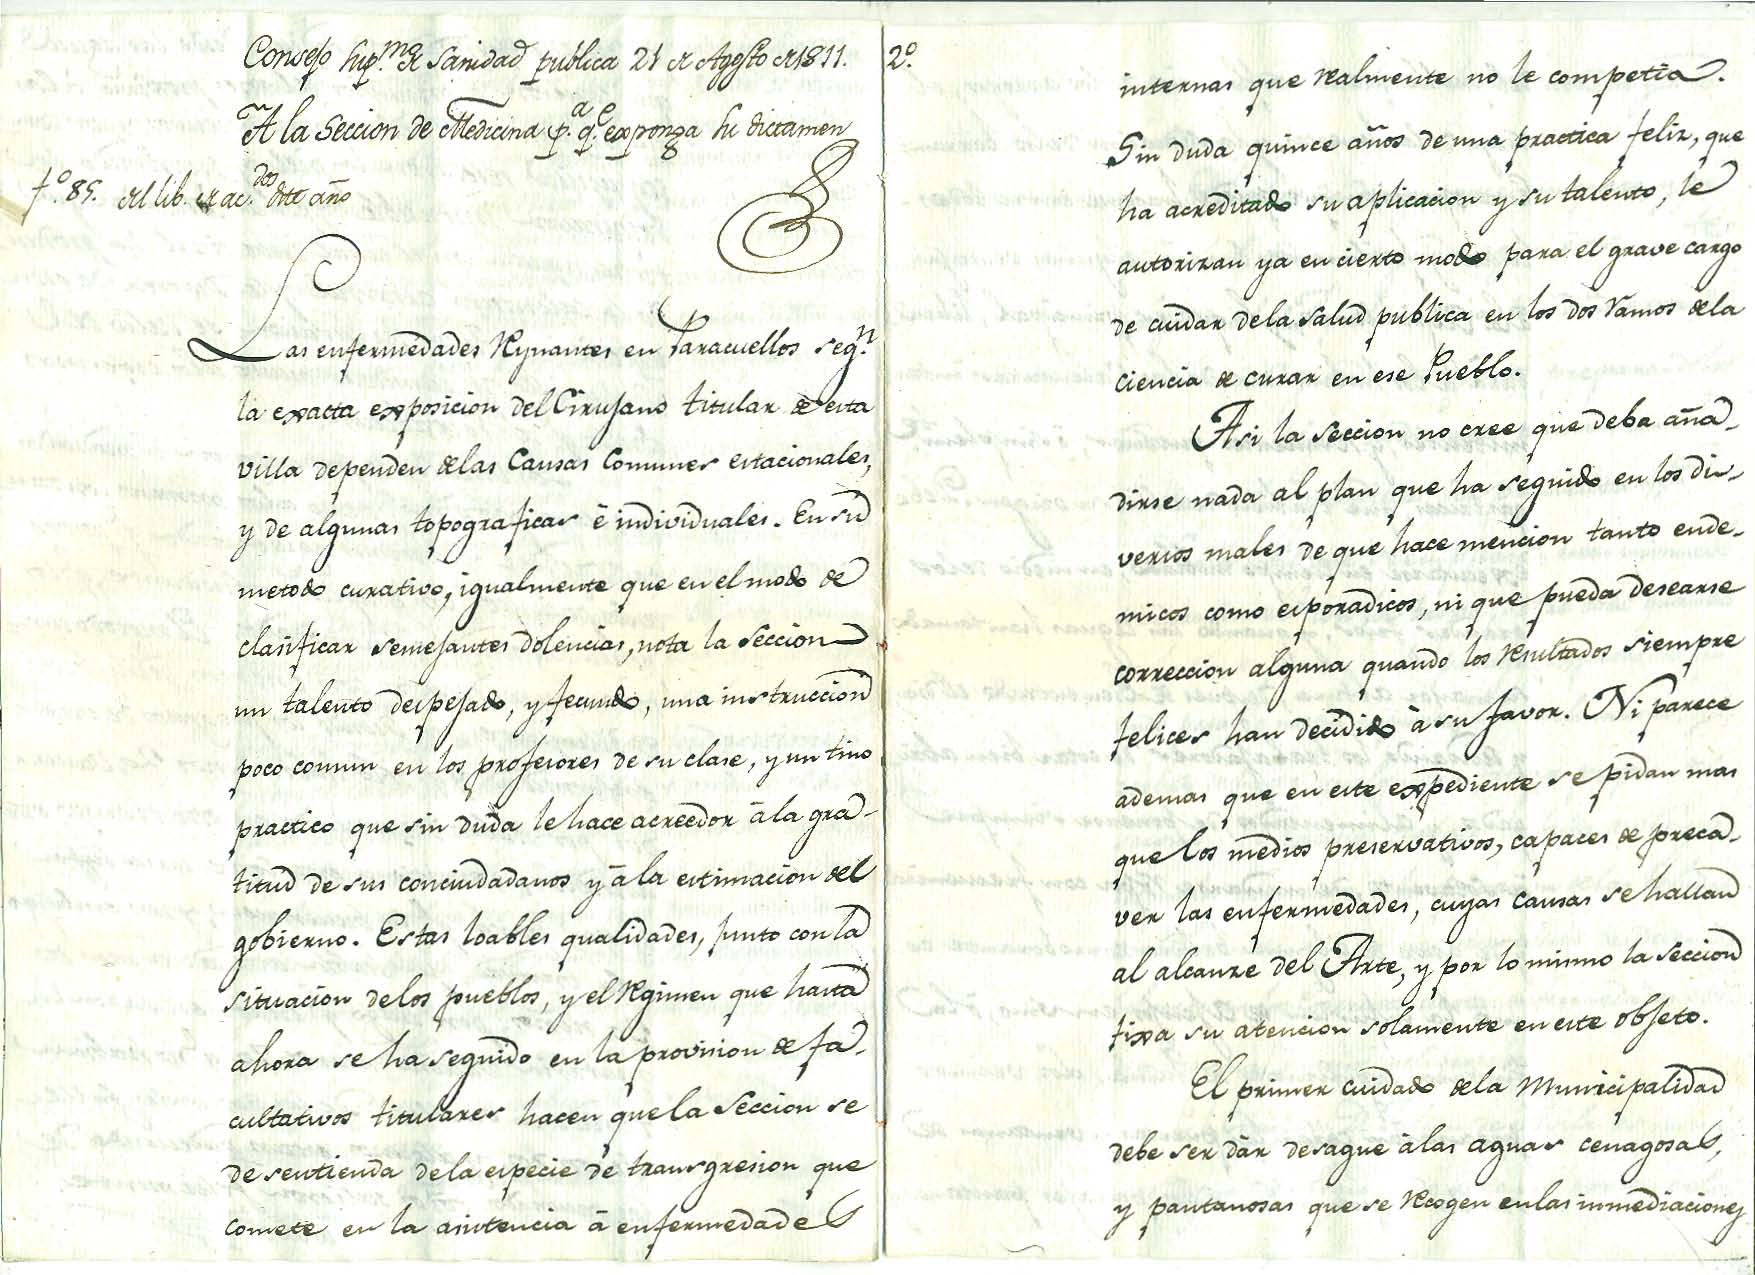 Consejo Sup.mo de Sanidad publica 21 de Agosto de 1811.
A la Seccion de Medicina p.a q.e exponga su dictamen
f.o 85. del lib. de ac.dos de este año
Las enfermedades reynantes en Paracuellos seg.n
la exacta exposicion del Cirujano titular de esta
villa dependen de las Causas Comunes estacionales,
y de algunas topograficas è individuales. En su
metodo curativo, igualmente que en el modo de
clasificar semejantes dolencias, nota la Seccion
un talento despejado, y fecundo, una instruccion
poco comun en los profesores de su clase, y un tino
practico que sin duda le hace acreedor à la gra-
titud de sus conciudadanos y à la estimacion del
gobierno. Estas loables qualidades, junto con la
situacion de los pueblos, y el regimen que hasta
ahora se ha seguido en la provision de fa-
cultativos titulares hacen que la Seccion se
desentienda de la especie de transgresion que
comete en la asistencia à enfermedades
2.o
internas que realmente no le competia.
Sin duda quince años de una practica feliz, que
ha acreditado su aplicacion y su talento, le
autorizan ya en cierto modo para el grave cargo
de cuidar de la salud publica en los dos ramos de la
ciencia de curar en ese Pueblo.
Asi la Seccion no cree que deba aña-
dirse nada al plan que ha seguido en los di-
versos males de que hace mencion tanto ende-
micos como esporadicos, ni que pueda desearse
correccion alguna quando los resultados siempre
felices han decidido à su favor. Ni parece
ademas que en este expediente se pidan mas
que los medios preservativos, capaces de preca-
ver las enfermedades, cuyas causas se hallan
al alcanze del Arte, y por lo mismo la Seccion
fixa su atencion solamente en este objeto.
El primer cuidado de la Municipalidad
debe ser dàr desague à las aguas cenagosas,
y pantanosas que se recogen en las inmediaciones